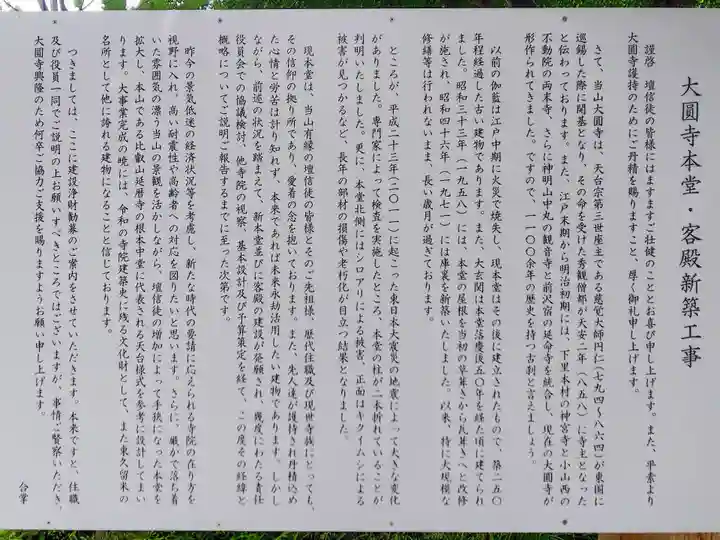 大圓寺本堂・客殿新築工事
謹啓 壇信徒の皆様にはますますご壮健のこととお喜び申し上げます。また、平素より
大圓寺護持のためにご丹精を賜りますこと、厚く御礼申し上げます。
さて、当山大圓寺は、天台宗第三世座主である慈覚大師円仁(七九四〜八六四)が東国に
巡錫した際に開基となり、その命を受けた秀観僧都が天安二年(八五八)に寺主となった
と伝わっております。また、江戸末期から明治初期には、下里本村の神宮寺と小山西の
不動院の両末寺、さらに神明山中丸の観音寺と前沢宿の延命寺を統合し、現在の大圓寺が
形作られてきました。ですので、一一〇〇余年の歴史を持つ古刹と言えましょう。
以前の伽藍は江戸中期に火災で焼失し、現本堂はその後に建立されたもので、築二五〇
年程経過した古い建物であります。また、大玄関は本堂落慶後五〇年を経た頃に建てられ
ました。昭和三十三年(一九五八)には、本堂の屋根を当初の草葺きから瓦葺きへと改修
が施され、昭和四十六年(一九七一)には庫裏を新築いたしました。以来、特に大規模な
修繕等は行われないまま、長い歳月が過ぎております。
ところが、平成二十三年(二〇一一)に起こった東日本大震災の地震によって大きな変化
がありました。専門家によって検査を実施したところ、本堂の柱が二本折れていることが
判明いたしました。更に、本堂北側にはシロアリによる被害、正面はキクイムシによる
被害が見つかるなど、長年の部材の損傷や老朽化が目立つ結果となりました。
現本堂は、当山有縁の壇信徒の皆様とそのご先祖様、歴代住職及び現世寺族にとっても、
その信仰の拠り所であり、愛着の念を抱いております。また、先人達が護持され丹精込め
た心情と労苦は計り知れず、本来であれば未来永劫活用したい建物であります。しかし
ながら、前述の状況を踏まえて、新本堂並びに客殿の建設が発願され、幾度にわたる責任
役員会での協議検討、他寺院の視察、基本設計及び予算策定を経て、この度その経緯と
概略についてご説明ご報告するまでに至った次第です。
昨今の景気低迷の経済状況等を考慮し、新たな時代の要請に応えられる寺院の在り方を
視野に入れ、高い耐震性や高齢者への対応を図りたいと思います。さらに、厳かで落ち着
いた雰囲気の漂う当山の景観を活かしながら、壇信徒の増加によって手狭になった本堂を
拡大し、本山である比叡山延暦寺の根本中堂に代表される天台様式を参考に設計してまい
ります。大事業完成の暁には、令和の寺院建築史に残る文化財として、また東久留米の
名所として他に誇れる建物になることと信じております。
つきましては、ここに建設浄財勧募のご案内をさせていただきます。本来ですと、住職
及び役員一同でご説明の上お願いすべきところではございますが、事情ご賢察いただき、
大圓寺興隆のため何卒ご協力ご支援を賜りますようお願い申し上げます。
合掌